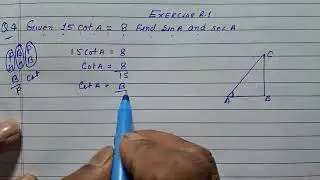 EXERCISE 8.1
Q4 Given 15 cot A = 8 find sin A and sec A
P B P
H H B
15 cot A = 8
cot A = 8
15
B
P
cot
cot A = B
C
A
B